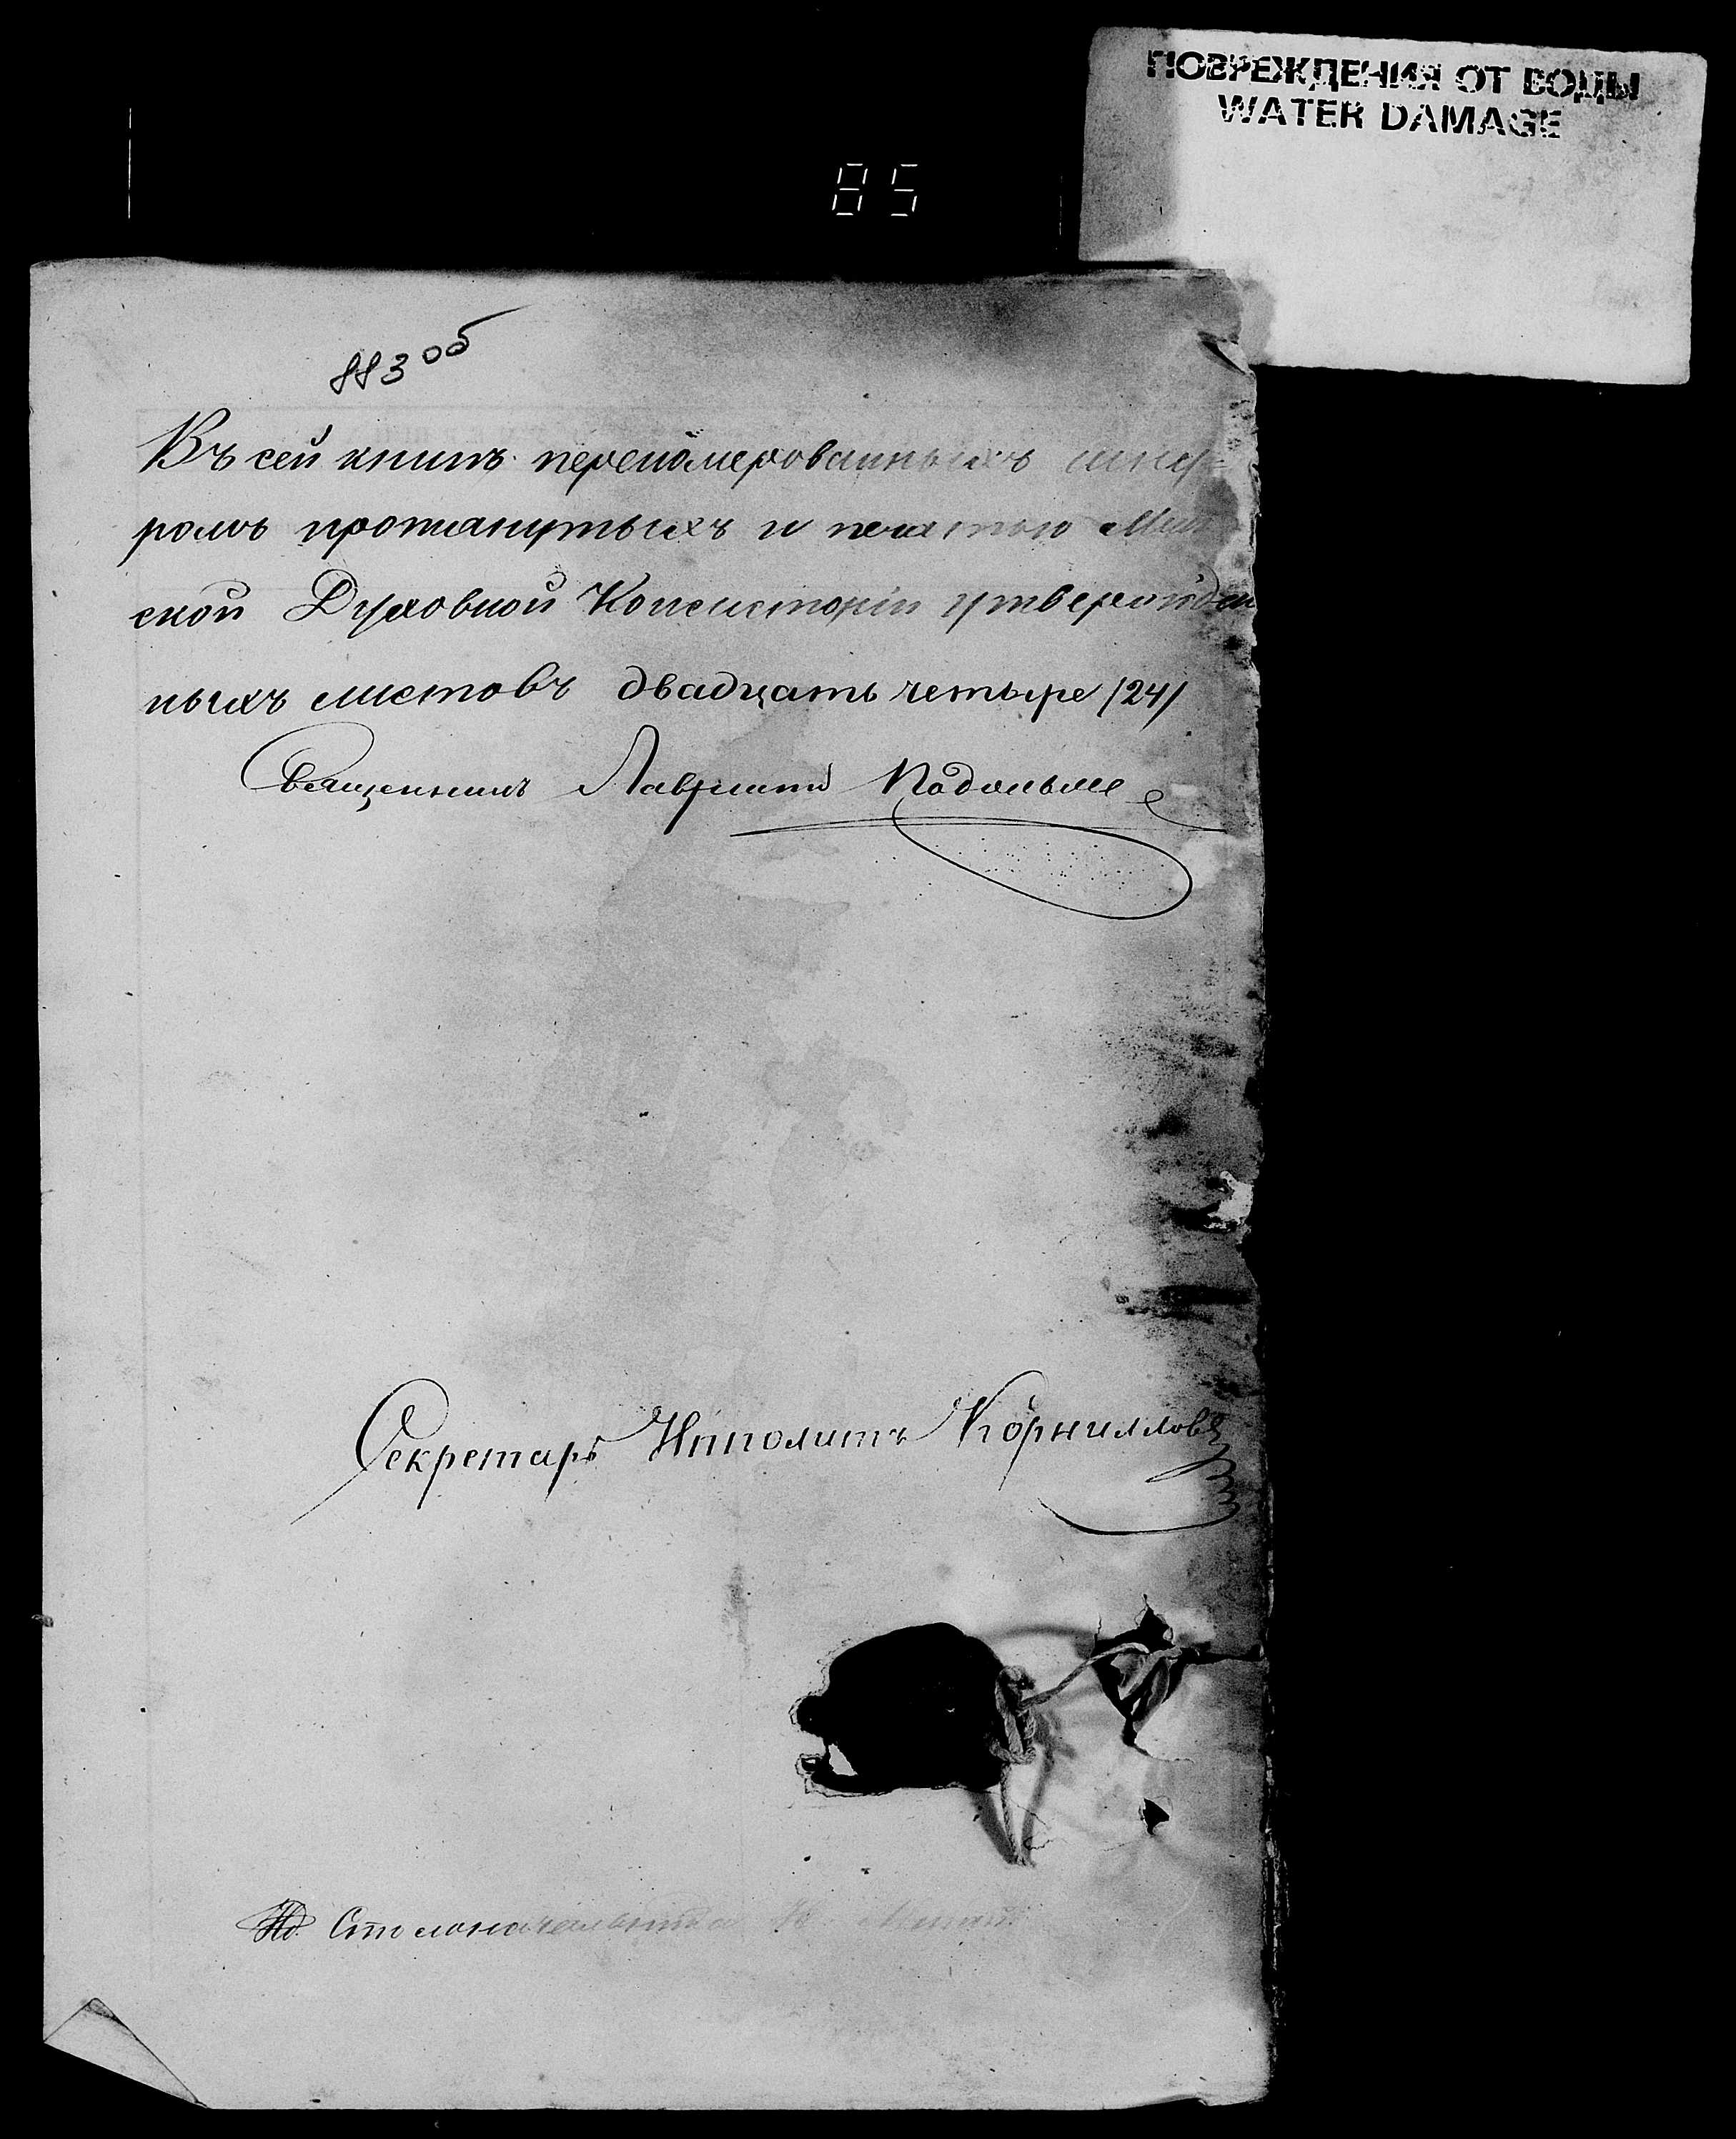 ПОВРЕЖДЕНИЯ ОТ ВОДЫ
WATER DAMAGE
85
883об
Въ сей книгѣ перенумерованныхъ шну-
ромъ протянутыхъ и печатью
ской Духовной Консисторіи утвержден
ныхъ листовъ двадцать четыре /24/
Священникъ Лаврентій
Секретарь Ипполитъ Корниловъ
Столоначальника